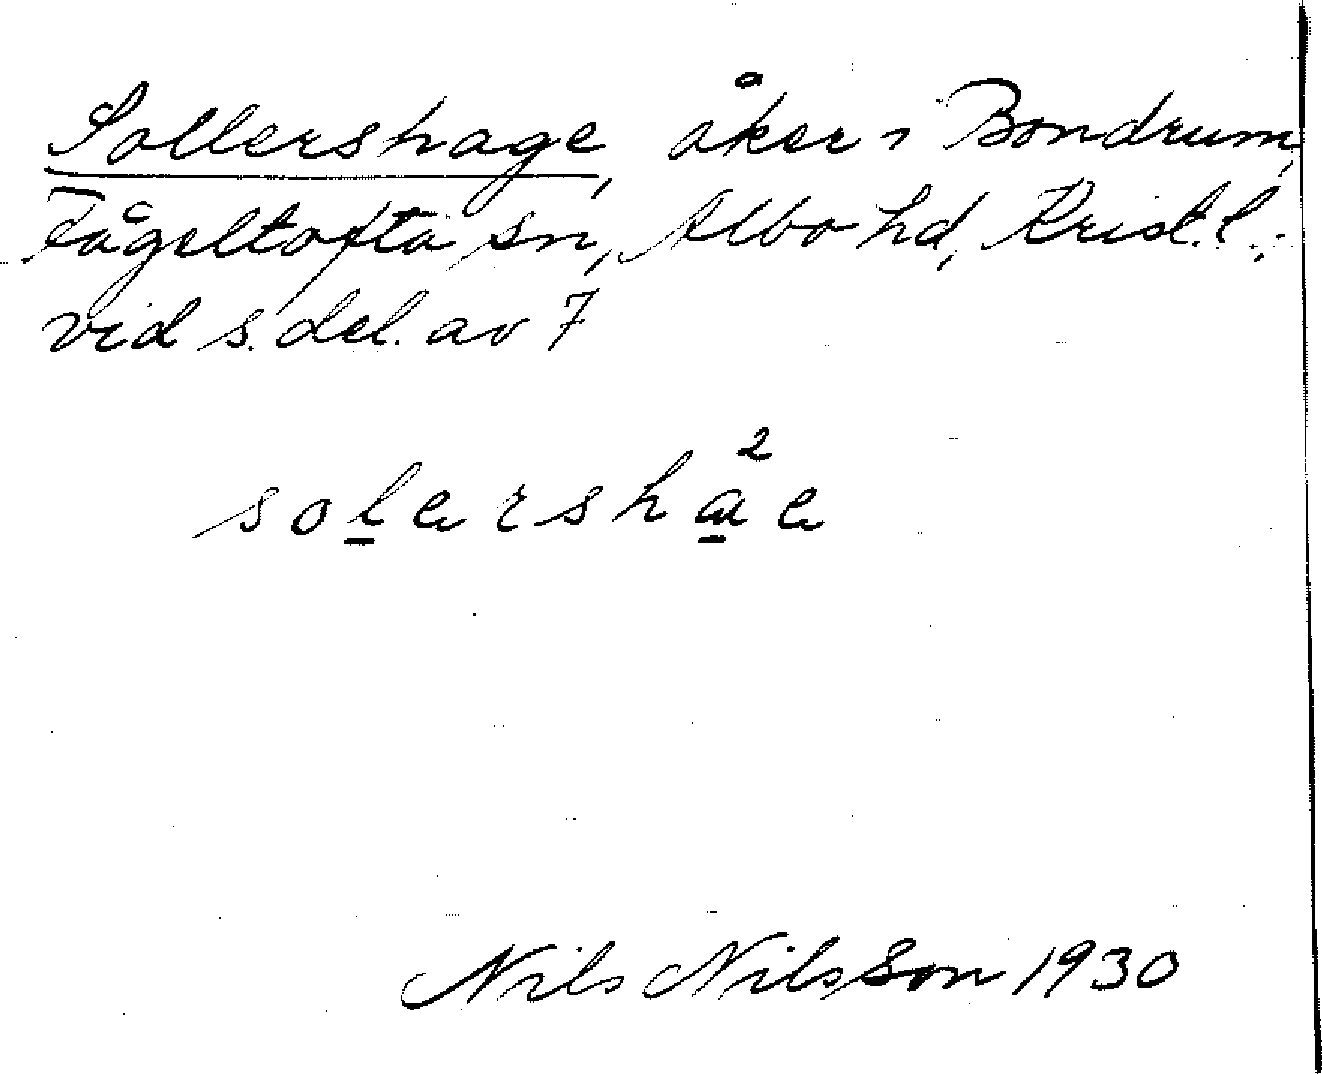 Sollershage, åker i Bondrum,
Fågeltofta sn, Albo hd, Krist. l.;
vid s. del. av 7
solersha²e
Nils Nilsson 1930